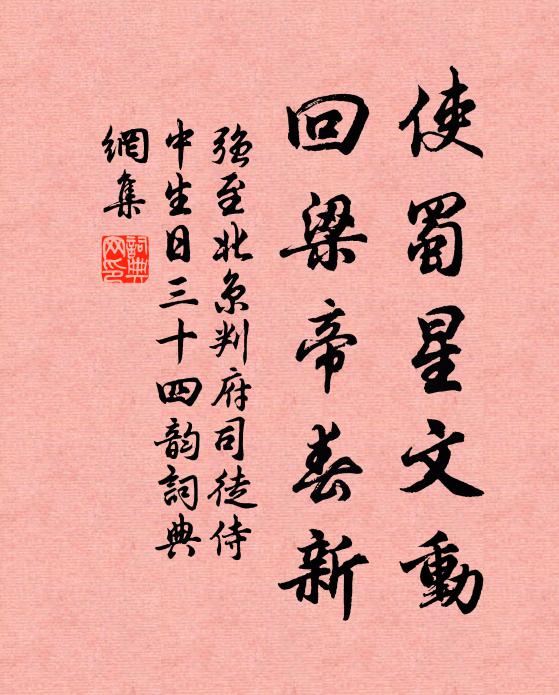 使蜀星文動
回梁帝春新
強至北京判府司徒侍
中生日三十四韵詞典
網集
詞典網印